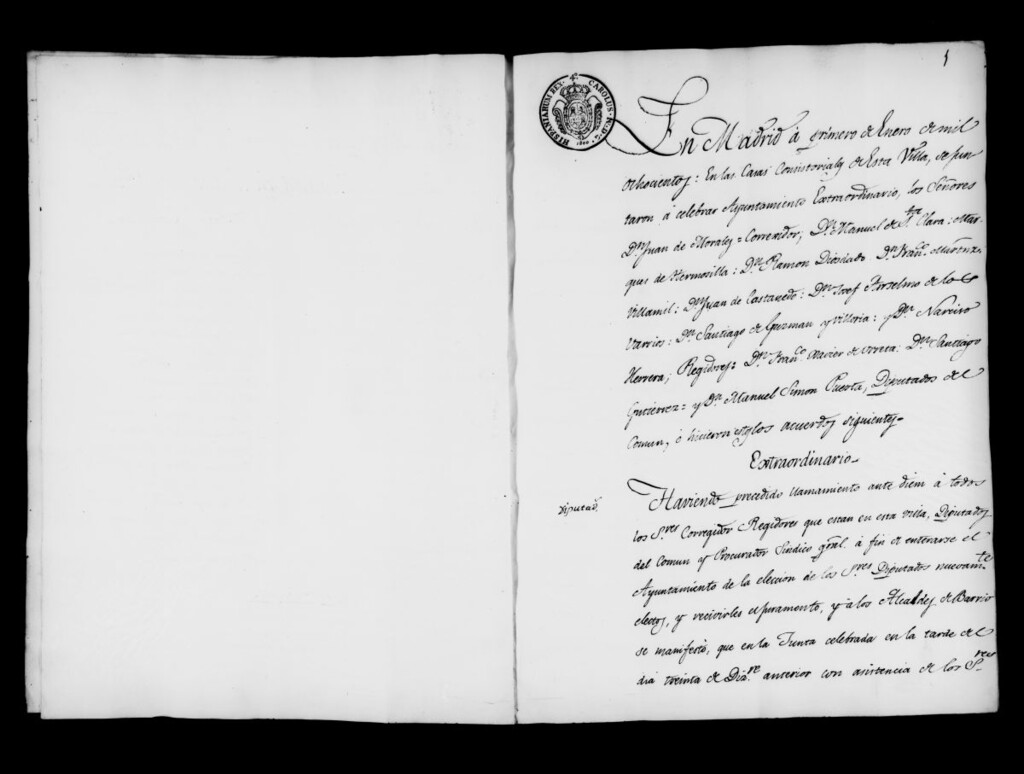 1
HISPANIARUM REX. CAROLUS. IV. D. G.
1800
En Madrid à primero de Enero de mil
ochocientos: En las Casas Consistoriales de Esta Villa, se jun
taron á celebrar Ayuntamiento Extraordinario, los Señores
Dn. Juan de Morales = Corregidor; Dn. Manuel de Sta. Clara: Mar-
ques de Hermosilla: Dn. Ramon Diosdado. Dn. Franco. Martinz.
Villamil: Dn. Juan de Castanedo: Dn. Josef Anselmo de los
Varrios: Dn. Santiago de Guzman y Villoria: y Dn. Narciso
Herrera; Regidores: Dn. Franco. Xavier de Orreta. Dn. Santiago
Gutierrez = y Dn. Manuel Simon Puerta, Diputados del
Comun, é hicieron los acuerdos siguientes.
Extraordinario.
Diputads.
Haviendo precedido llamamiento ante diem à todos
los Sres. Corregidor Regidores que estan en esta villa, Diputados
del Comun y Procurador Sindico gral. á fin de enterarse el
Ayuntamiento de la eleccion de los Sres. Diputados nuevamte.
electos, y recivirles el juramento, y á los Alcaldes de Barrio
se manifestó, que en la Junta celebrada en la tarde del
dia treinta de Dizre. anterior con asistencia de los Sres.